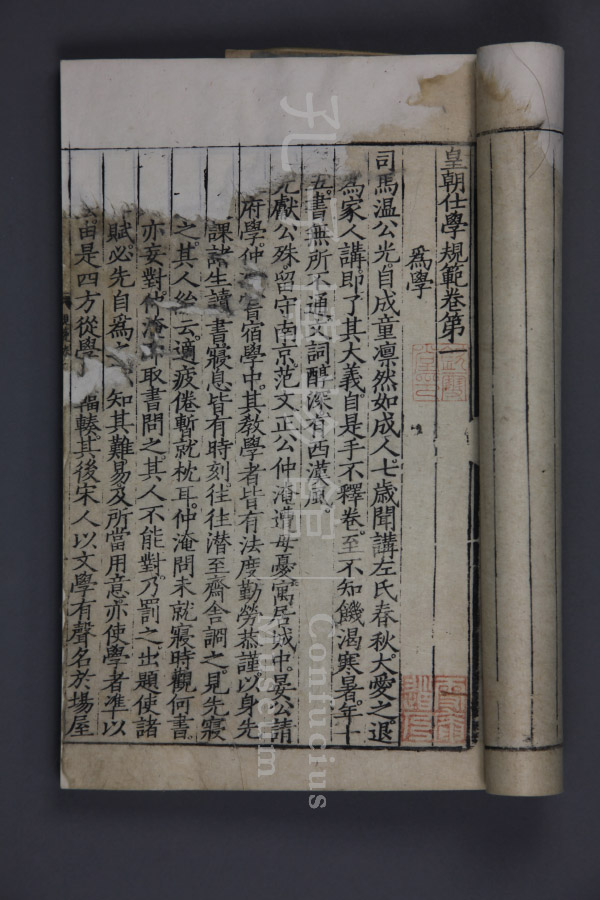 皇朝仕學規範卷第一
爲學
司馬温公光自成童凛然如成人七歲聞講左氏春秋大愛之退
爲家人講即了其大義自是手不釋卷至不知飢渴寒暑年十
五書無所不通文詞醇深有西漢風
元獻公殊留守南京范文正公仲淹遭母憂寓居城中晏公請
府學仲 宿學中其教學者皆有法度勤勞恭謹以身先
課諸生讀書寢息皆有時刻往往潜至齋舍詗之見先寢
之其人紿云適疲倦暫就枕耳仲淹問未就寢時觀何書
亦妄對仲淹 取書問之其人不能對乃罰之出題使諸
賦必先自爲之 知其難易及所當用意亦使學者凖以
由是四方從學 輻輳其後宋人以文學有聲名於場屋
孔 博 館
Confucius
Museum